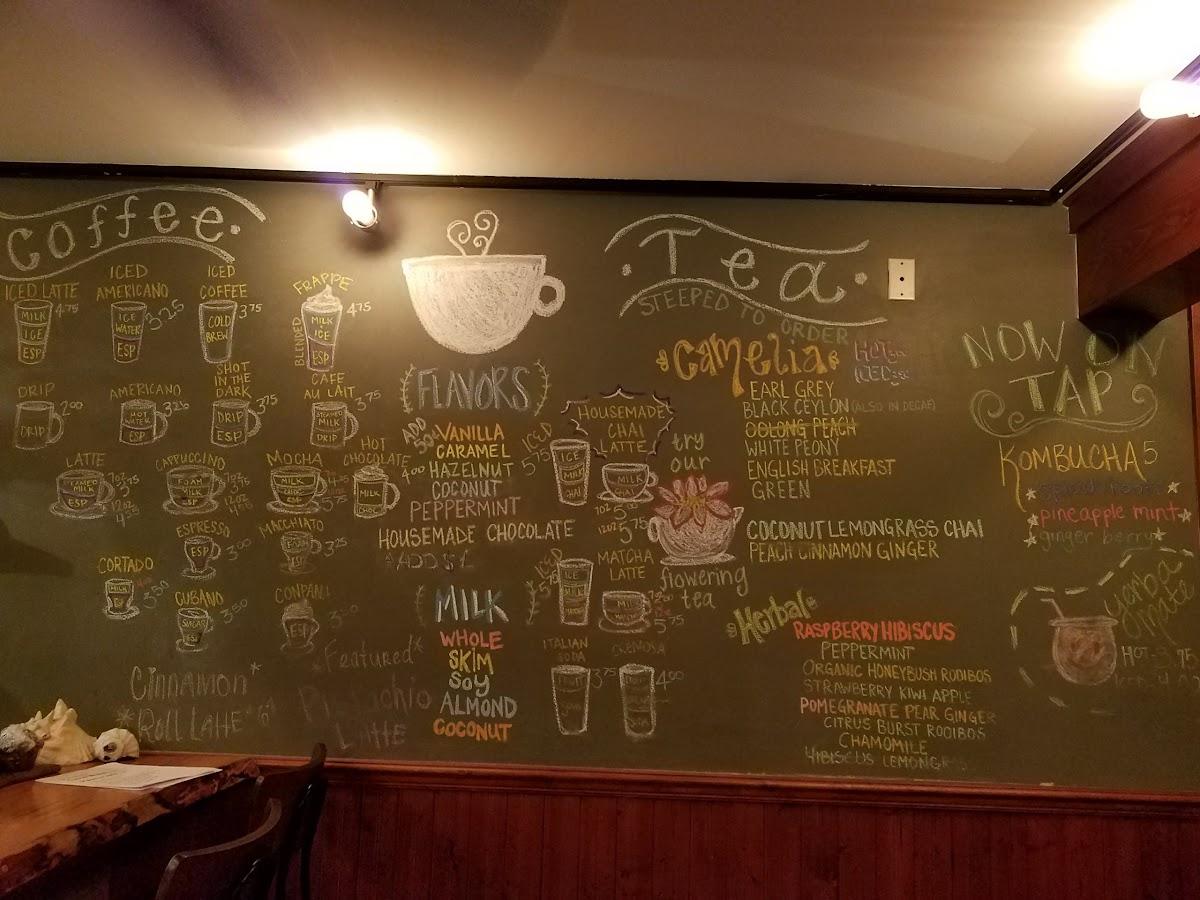 Coffee.
ICED LATTE
MILK
ICE
ESP
4.75
ICED
AMERICANO
ICE
WATER
ESP
3.25
ICED
COFFEE
COLD
BREW
3.75
FRAPPE
BLENDED
MILK
ICE
ESP
4.75
DRIP
DRIP
2.00
AMERICANO
HOT
WATER
ESP
SHOT
IN THE
DARK
DRIP
ESP
3.75
CAFE
AU LAIT
STEAMED
MILK
DRIP
3.75
LATTE
STEAMED
MILK
ESP
CAPPUCCINO
FOAM
MILK
ESP
MOCHA
MILK
CHOC
ESP
HOT
CHOCOLATE
MILK
CHOC
4.00
ESPRESSO
ESP
3.00
MACCHIATO
FOAM
ESP
3.25
CORTADO
MILK
ESP
3.50
CUBANO
SUGAR
ESP
3.50
CONPANA
ESP
3.50
Cinnamon
Roll Latte
*Featured*
Pistachio
Latte
FLAVORS
ADD
50¢
VANILLA
CARAMEL
HAZELNUT
COCONUT
PEPPERMINT
HOUSEMADE CHOCOLATE
ADD $1
MILK
WHOLE
SKIM
SOY
ALMOND
COCONUT
HOUSEMADE
CHAI
LATTE
ICED
5.75
ICE
MILK
CHAI
MILK
CHAI
12OZ 5.75
ICED
MATCHA
LATTE
ICE
MILK
MILK
5.75
ITALIAN
SODA
3.75
CREMOSA
4.00
.Tea.
STEEPED TO ORDER
Camelia
HOT
ICED
EARL GREY
BLACK CEYLON (ALSO IN DECAF)
OOLONG PEACH
WHITE PEONY
ENGLISH BREAKFAST
GREEN
COCONUT LEMONGRASS CHAI
PEACH CINNAMON GINGER
try
our
flowering
tea
Herbal
RASPBERRY HIBISCUS
PEPPERMINT
ORGANIC HONEYBUSH ROOIBOS
STRAWBERRY KIWI APPLE
POMEGRANATE PEAR GINGER
CITRUS BURST ROOIBOS
CHAMOMILE
HIBISCUS LEMONGRASS
NOW ON
TAP
KOMBUCHA 5
pineapple mint
ginger berry
yerba
mate
HOT-3.75
ICED-4.00